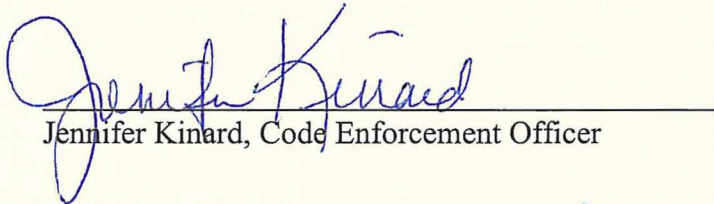 Jennifer Kinard
Jennifer Kinard, Code Enforcement Officer